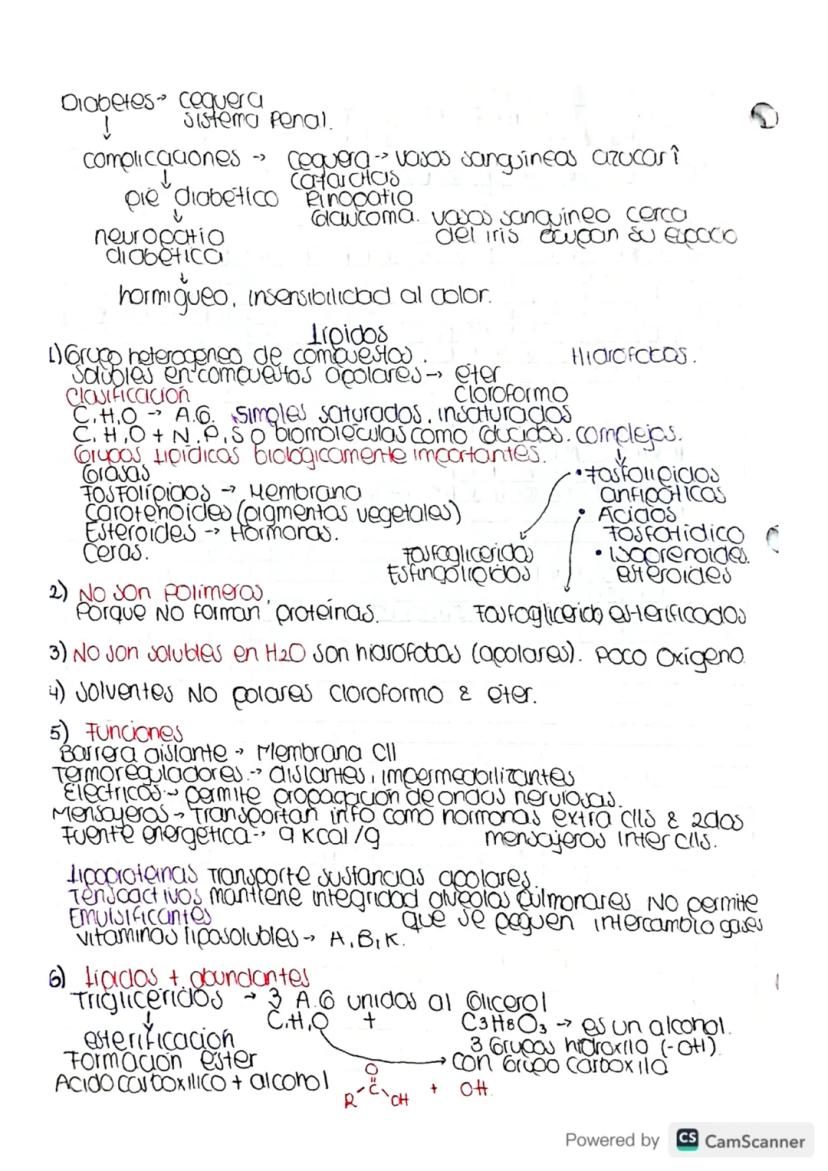 Diabetes → ceguera
sistema renal.
↓
complicaciones → ceguera → vasos sanguineos azucar↑
↓ cataratas
pre diabético Rinopatia
↓ Glaucoma. vasos sanguineo cerca
neuropatia del iris ocupan su espacio
diabética
↓
hormigueo, insensibilidad al dolor.
Lipidos
1) Grupo heterogeneo de compuestos. Hidrofobos.
Solubles en compuestos apolares → eter
Clasificación cloroformo
C, H, O → A.G. simples saturados, insaturados
C, H, O + N, P, S o biomoleculas como glucidos. complejos.
Grupos Lipidicos biologicamente importantes. ↓
Grasas • Fosfolipidos
Fosfolípidos → Membrana anfipáticas
Carotenoides (pigmentos vegetales) • Acidos
Esteroides → Hormonas. Fosfatidico
Ceras. Fosfogliceridos • Isoprenoides.
Esfingolipidos esteroides
2) No son polimeros,
Porque No forman proteínas. Fosfoglicerido esterificados
3) No son solubles en H2O son hidrofobos (apolares). Poco Oxigeno.
4) Solventes No polares cloroformo & eter.
5) Funciones
Barrera aislante → Membrana Cll
Termoreguladores → aislantes, impermeabilizantes
Electricos → permite propagación de ondas nerviosas.
Mensajeros → Transportan info como hormonas extra clls & 2dos
Fuente energetica → 9 Kcal/g mensajeros inter clls.
Lipoproteinas Transporte sustancias apolares.
Tensoactivos mantiene integridad alveolos pulmonares No permite
Emulsificantes que se peguen intercambio gases
vitaminas liposolubles → A, B, K.
6) Lipidos + abundantes
Trigliceridos → 3 A.G unidos al Glicerol
↓ C, H, O + C3H8O3 → es un alcohol.
esterificación 3 Grupos hidroxilo (-OH).
Formación ester → con Grupo carboxilo
Acido carboxilico + alcohol R-C(=O)-OH + OH
Powered by CS CamScanner